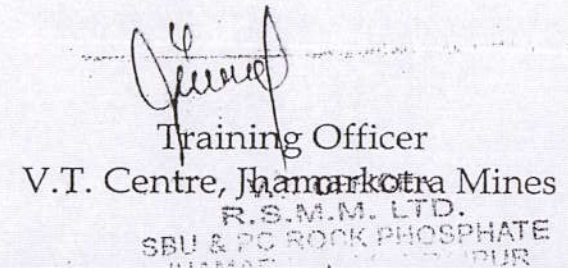 Training Officer
V.T. Centre, Jhamarkotra Mines
R.S.M.M. LTD.
SBU & PC ROCK PHOSPHATE